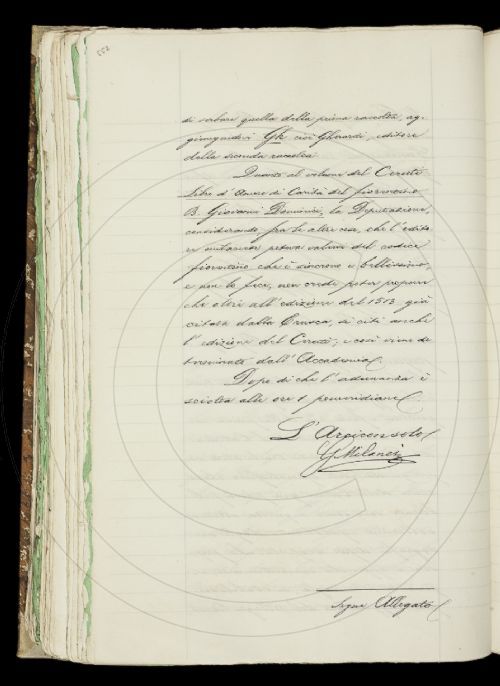 552
di serbare quella della prima raccolta, ag-
giungendovi Gh. cioè Gherardi, editore
della seconda raccolta.
Quanto al volume del Ceruti
Libro d'Amore di Carità del fiorentino
B. Giovanni Dominici, la Deputazione,
considerando fra le altre cose, che l'edito
re milanese poteva valersi del codice
fiorentino che è sincrono e bellissimo,
e non lo fece, non crede poter proporre
che oltre all'edizione del 1513 già
citata dalla Crusca, si citi anche
l'edizione del Ceruti; e così viene de
terminato dall'Accademia.
Dopo di che l'adunanza è
sciolta alle ore 1 pomeridiane.
L'Arciconsolo
G Milanesi
Segue Allegato